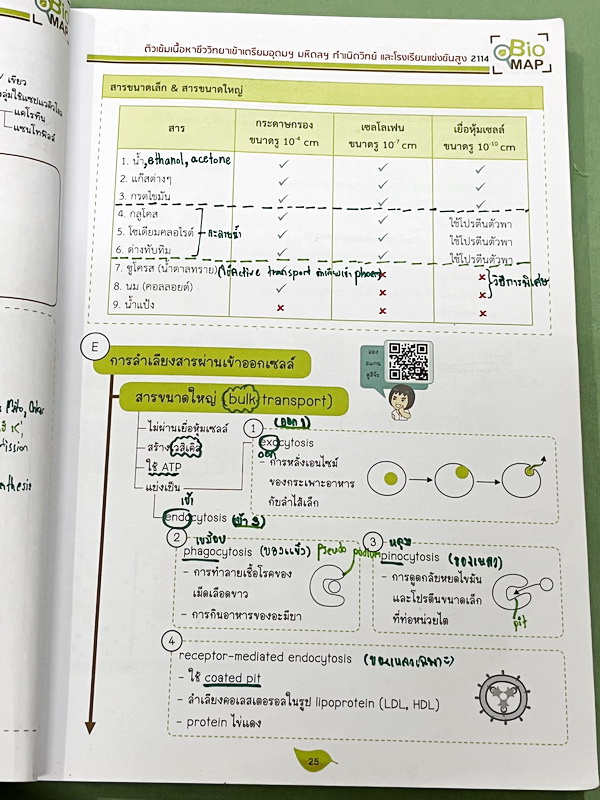 / เขียว
แคโรทีน
แซนโทฟิลล์
Bio
MAP
ติวเข้มเนื้อหาชีววิทยาเข้าเตรียมอุดมฯ มหิดลฯ กำเนิดวิทย์ และโรงเรียนแข่งขันสูง 2114
Bio
MAP
สารขนาดเล็ก & สารขนาดใหญ่
สาร กระดาษกรอง ขนาดรู 10⁻⁴ cm เซลโลเฟน ขนาดรู 10⁻⁷ cm เยื่อหุ้มเซลล์ ขนาดรู 10⁻¹⁰ cm
1. น้ำ, ethanol, acetone ✓ ✓ ✓
2. แก๊สต่างๆ ✓ ✓ ✓
3. กรดไขมัน ✓ ✓ ✓
4. กลูโคส ✓ ✓ ใช้โปรตีนตัวพา
5. โซเดียมคลอไรด์ ละลายน้ำ ✓ ✓ ใช้โปรตีนตัวพา
6. ด่างทับทิม ✓ ✓ ใช้โปรตีนตัวพา
7. ซูโครส (น้ำตาลทราย) (ใช้ Active transport ✗ ✗
8. นม (คอลลอยด์) ✓ ✗ ✗ วิธีการพิเศษ
9. น้ำแป้ง ✗ ✗ ✗
E
การลำเลียงสารผ่านเข้าออกเซลล์
ลอง
สแกน
ดูสิจ๊ะ
สารขนาดใหญ่ (bulk transport)
ไม่ผ่านเยื่อหุ้มเซลล์
สร้างเวสิเคิล
ใช้ ATP
แบ่งเป็น
1
exocytosis
ออก
- การหลั่งเอนไซม์
ของกระเพาะอาหาร
กับลำไส้เล็ก
เข้า
endocytosis
2
phagocytosis (ของแข็ง) pseudo podium
- การทำลายเชื้อโรคของ
เม็ดเลือดขาว
- การกินอาหารของอะมีบา
3
หลุม
pinocytosis (ของเหลว)
- การดูดกลับหยดไขมัน
และโปรตีนขนาดเล็ก
ที่ท่อหน่วยไต
pit
4
receptor-mediated endocytosis
- ใช้ coated pit
- ลำเลียงคอเลสเตอรอลในรูป lipoprotein (LDL, HDL)
- protein ไข่แดง
25